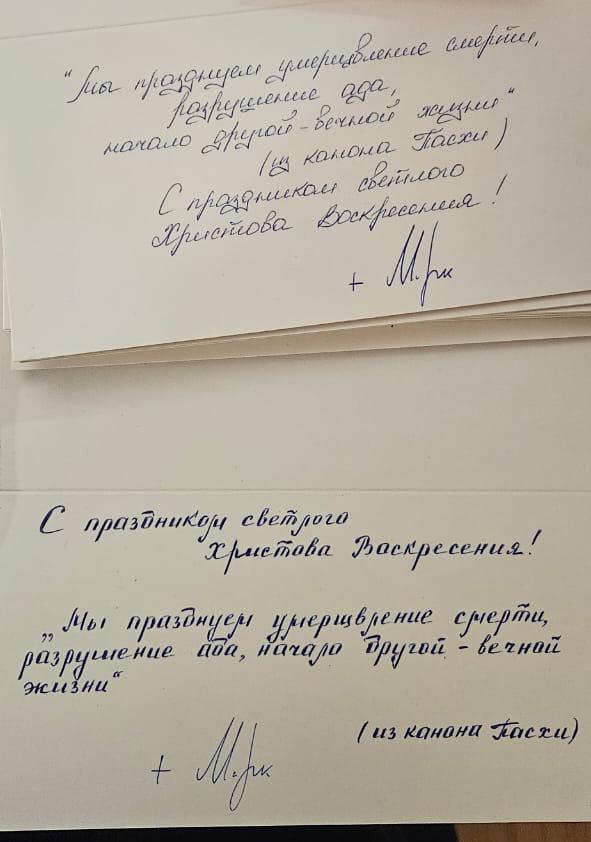 "Мы празднуем умерщвление смерти,
разрушение ада,
начало другой - вечной жизни"
(из канона Пасхи)
С праздником светлого
Христова Воскресения!
+ Марк
С праздником светлого
Христова Воскресения!
„Мы празднуем умерщвление смерти,
разрушение ада, начало другой - вечной
жизни“
(из канона Пасхи)
+ Марк